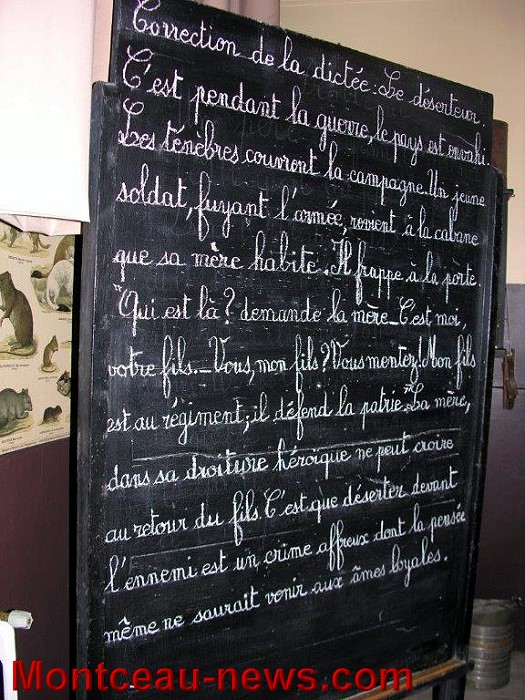 Correction de la dictée : Le déserteur.
C'est pendant la guerre, le pays est envahi.
Les ténèbres couvrent la campagne. Un jeune
soldat, fuyant l'armée, revient à la cabane
que sa mère habite. Il frappe à la porte.
"Qui est là ? demande la mère _ C'est moi,
votre fils. _ Vous, mon fils ? Vous mentez ! Mon fils
est au régiment ; il défend la patrie." La mère,
dans sa droiture héroïque ne peut croire
au retour du fils. C'est que déserter devant
l'ennemi est un crime affreux dont la pensée
même ne saurait venir aux âmes loyales.
Montceau-news.com